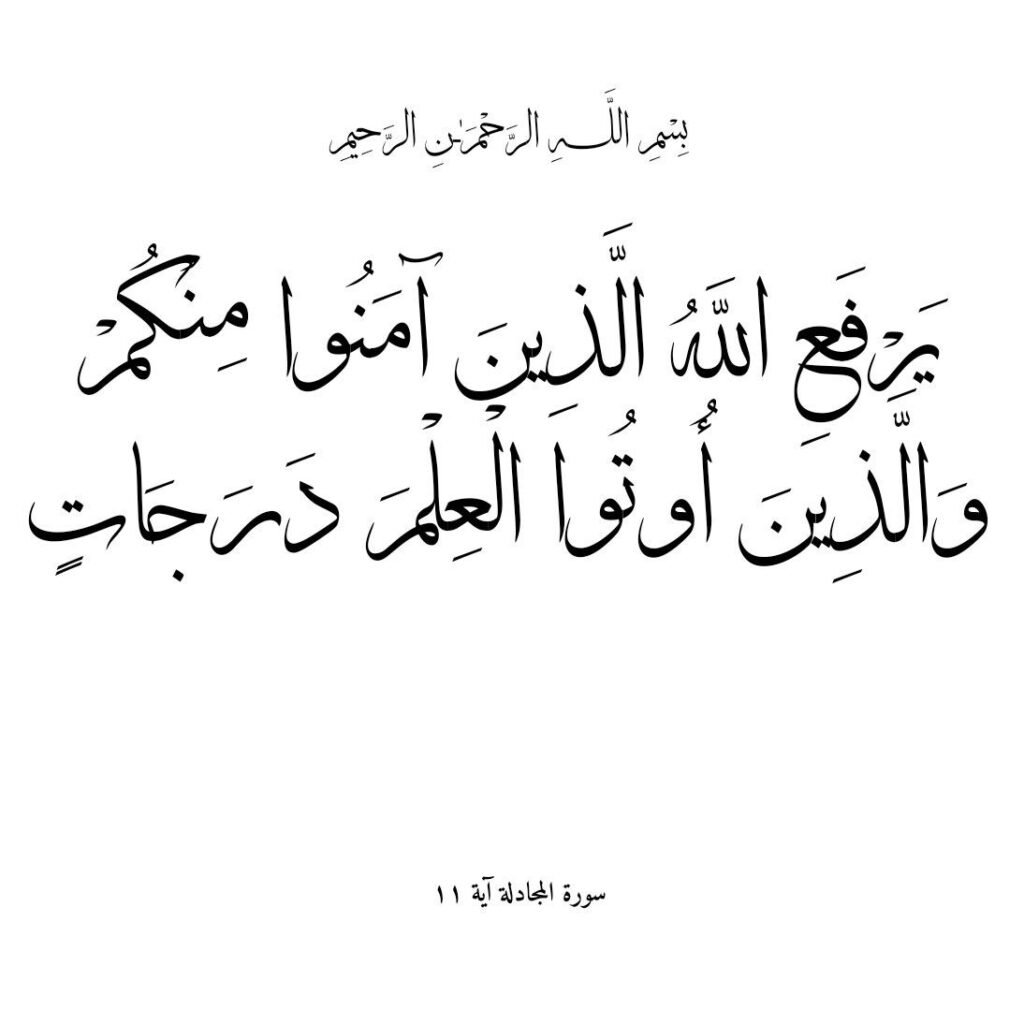 بِسْمِ اللَّـهِ الرَّحْمَـٰنِ الرَّحِيمِ
يَرْفَعِ اللَّهُ الَّذِينَ آمَنُوا مِنْكُمْ
وَالَّذِينَ أُوتُوا الْعِلْمَ دَرَجَاتٍ
سورة المجادلة آية ١١